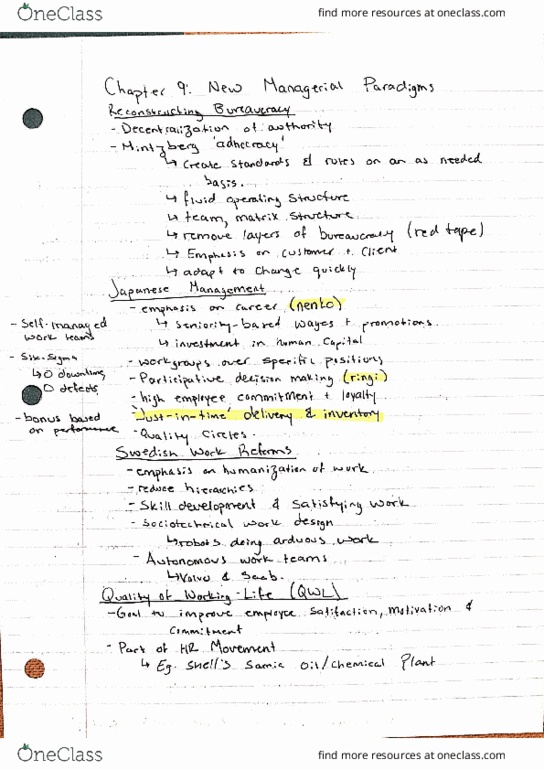 OneClass
find more resources at oneclass.com
Chapter 9: New Managerial Paradigms
Reconstructing Bureaucracy
- Decentralization of authority
- Mintzberg 'adhocracy'
↳ Create standards & rules on an as needed
basis.
↳ fluid operating structure
↳ team, matrix structure
↳ remove layers of bureaucracy (red tape)
↳ Emphasis on customer + client
↳ adapt to change quickly
Japanese Management
- emphasis on career (nenko)
↳ seniority-based wages + promotions.
↳ investment in human capital
- workgroups over specific positions
- Participative decision making (ringi)
- high employee commitment + loyalty
- 'Just-in-time' delivery & inventory
- Quality Circles.
- Self-managed
work teams
- Six-Sigma
↳ 0 downtime,
0 defects
- bonus based
on performance
Swedish Work Reforms
- emphasis on humanization of work
- reduce hierarchies
- Skill development & satisfying work
- Sociotechnical work design
↳ robots doing arduous work
- Autonomous work teams
↳ Volvo & Saab.
Quality of Working-Life (QWL)
- Goal to improve employee satifaction, motivation &
commitment
- Part of HR Movement
↳ Eg. Shell's Sarnia Oil/Chemical Plant
OneClass
find more resources at oneclass.com